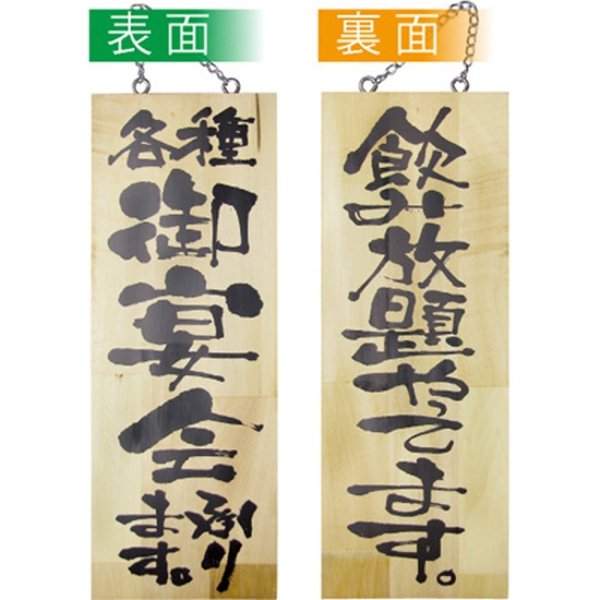 表面
各種
御宴会
承り
ます。
裏面
飲み放題やってます。